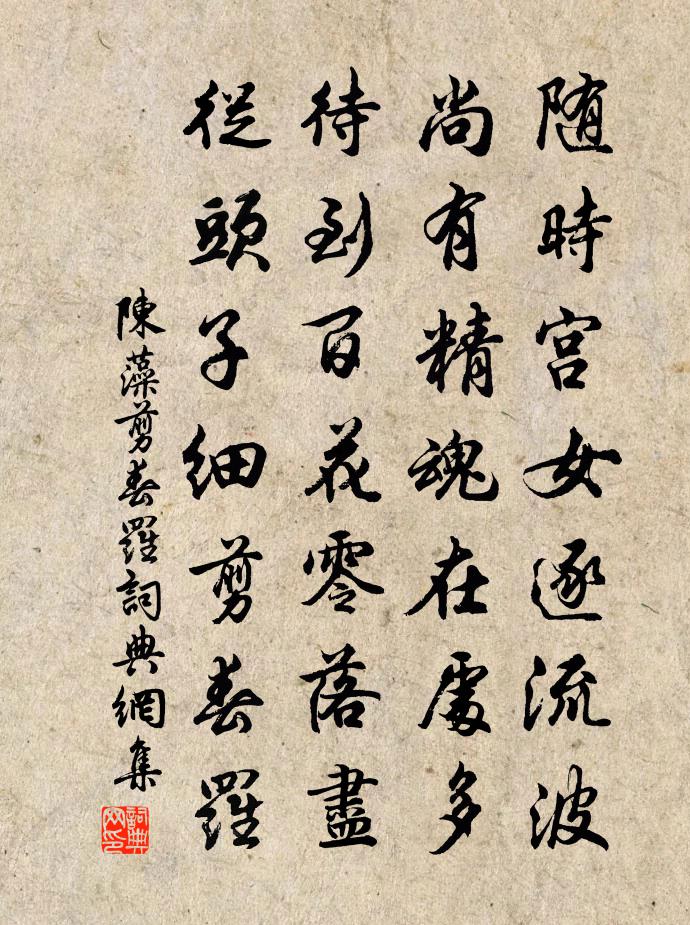 随時宫女逐流波
尚有精魂在處多
待到百花零落盡
從頭子細剪春羅
陳藻剪春羅詞典網集
詞典
网印